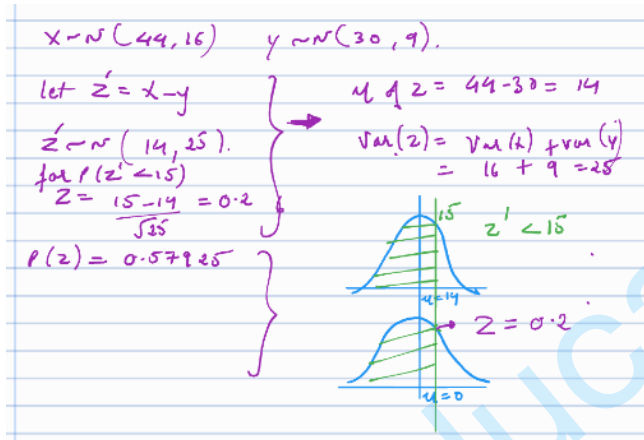 x ~ N(44, 16) y ~ N(30, 9).
let z' = x - y
z' ~ N(14, 25).
for P(z' < 15)
Z = 15 - 14 / √25 = 0.2
P(z) = 0.57925
μ of z = 44 - 30 = 14
Var(z) = Var(x) + Var(y)
= 16 + 9 = 25
15
z' < 15
μ = 14
Z = 0.2
μ = 0